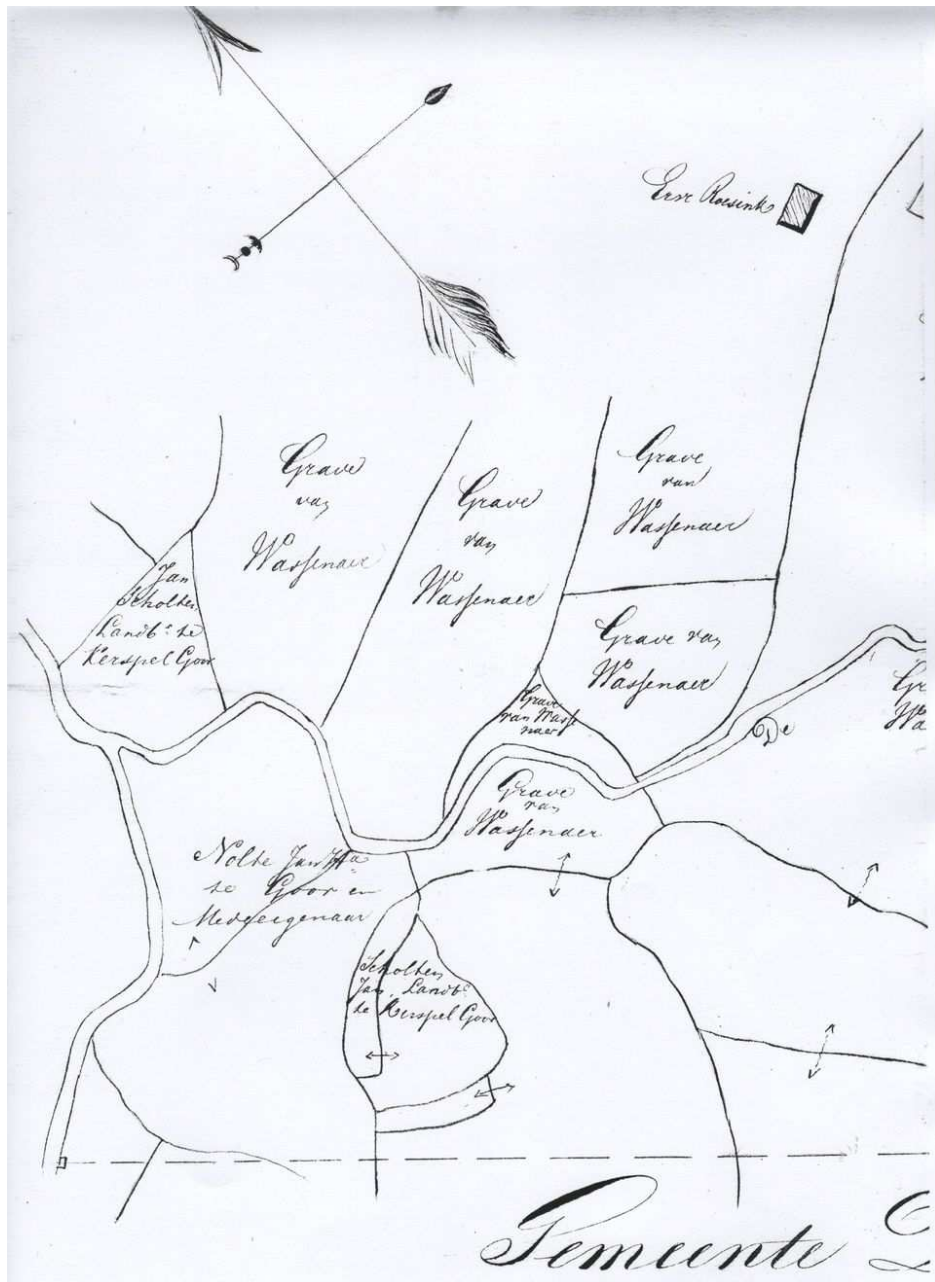 Erve Roesink
Grave
van
Wassenaer
Grave
van
Wassenaer
Grave
van
Wassenaer
Jan
Scholten
Landb.r te
Kerspel Goor
Grave van
Wassenaer
Grave
van Wasse
naer
De
Gr
Wa
Grave
van
Wassenaer
Nolte Jan
te Goor en
Medeeigenaar
Scholten
Jan Landb.r
te Kerspel Goor
Gemeente